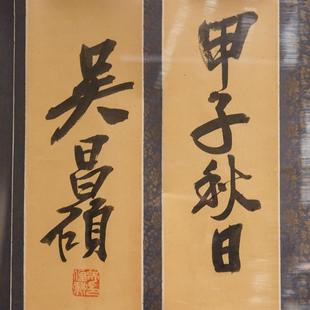 甲子秋日
吴昌碩